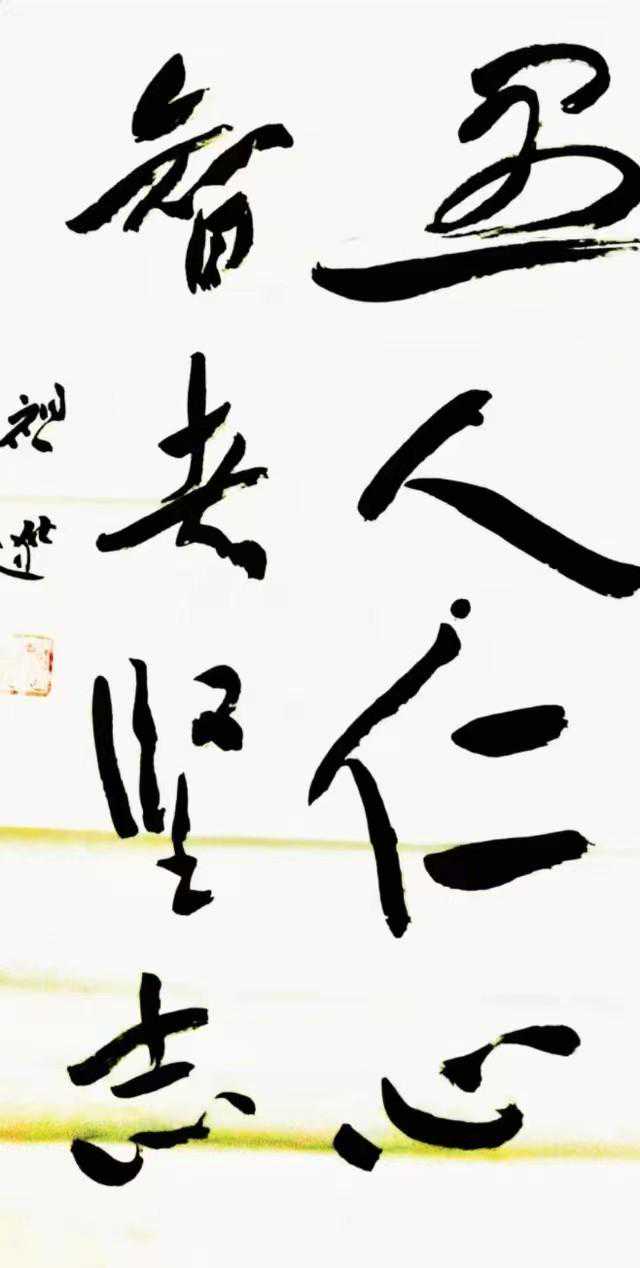 人仁心
智者坚志
祖